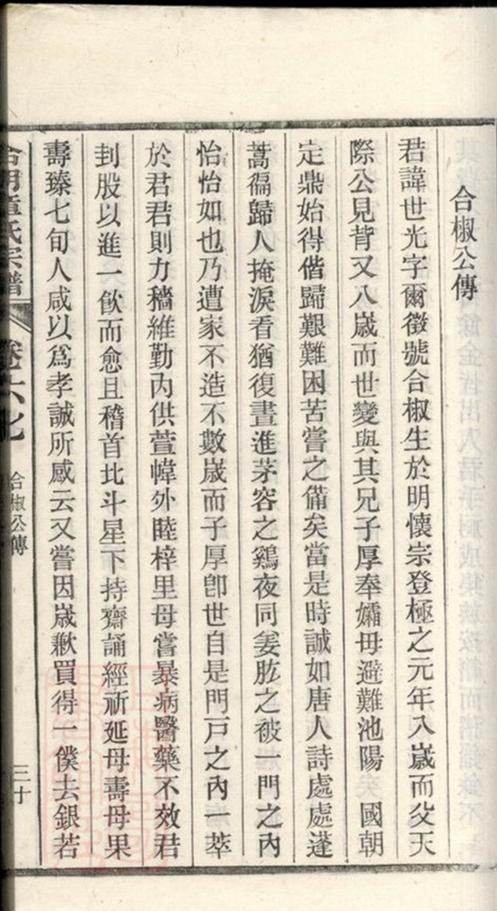 合椒公傳
君諱世光字爾徵號合椒生於明懷宗登極之元年入歲而父天
際公見背又八歲而世變與其兄子厚奉孀母避難池陽　國朝
定鼎始得偕歸艱難困苦嘗之備矣當是時誠如唐人詩處處蓬
蒿徧歸人掩淚看猶復晝進茅容之鷄夜同姜肱之被一門之內
怡怡如也乃遭家不造不數歲而子厚卽世自是門戸之內一萃
於君君則力穡維勤內供萱幃外睦梓里母嘗暴病醫藥不效君
刲股以進一飲而愈且稽首北斗星下持齋誦經祈延母壽母果
壽臻七旬人咸以爲孝誠所感云又嘗因歲歉買得一僕去銀若
合明童氏宗譜
卷六七
合椒公傳
三十